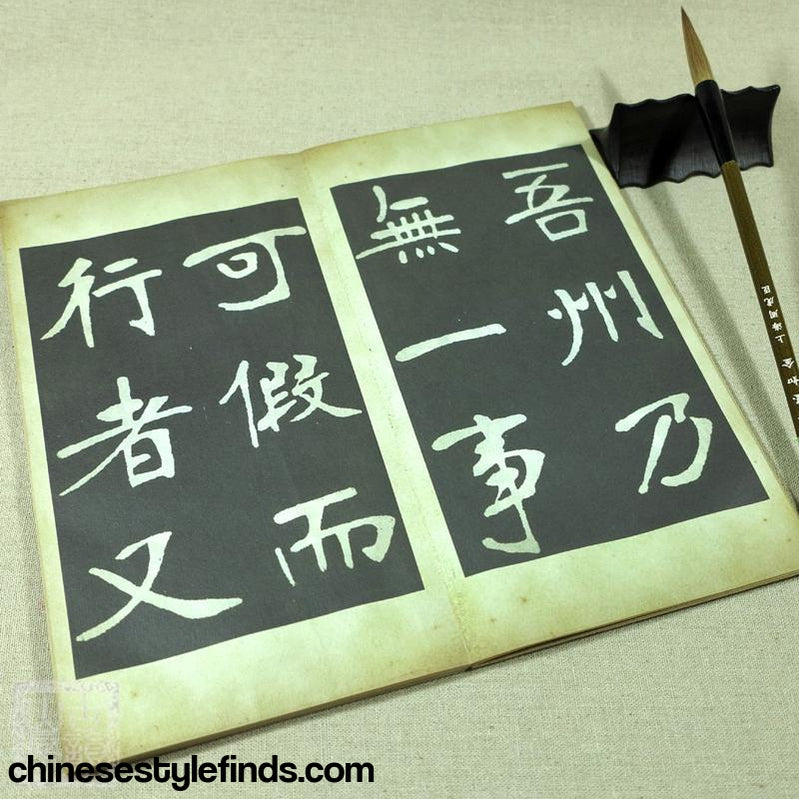 吾州乃
無一事
可假而
行者又
上海周虎臣
chinesestylefinds.com